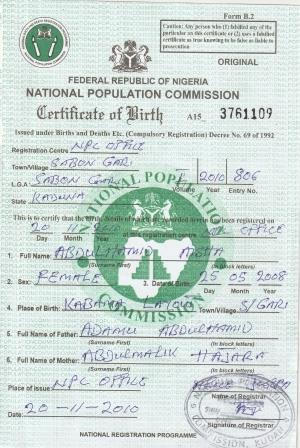 Form B.2
Caution: Any person who (1) falsifies any of the
particular on this certificate or (2) uses a falsified
certificate as true knowing to be false as liable to
prosecution
ORIGINAL
FEDERAL REPUBLIC OF NIGERIA
NATIONAL POPULATION COMMISSION
Certificate of Birth A15 3761109
Issued under Births and Deaths Etc. (Compulsory Registration) Decree No. 69 of 1992
Registration Centre NPC OFFICE
Town/Village SABON GARI
L.G.A SABON GARI 2010 806
Volume Year Entry No.
State KADUNA
This is to certify that the birth, details of which are recorded herein has been registered on
20 11 2010 at this registration centre OFFICE
Day Month Year
1. Full Name: ABDULHAMID AISHA
(Surname First) (In block letters)
2. Sex: FEMALE 3. Date of Birth: 25 05 2008
Day Month Year
4. Place of Birth: KABAMA S/GARI
Town/Village
5. Full Name of Father: ADAMU ABDULHAMID
(Surname First) (in block letters)
6. Full Name of Mother: ABDULMALIK HAJARA
(Surname First) (In block letters)
Place of Issue: NPC OFFICE
Name of Registrar
Date: 20-11-2010
Signature of Registrar
NATIONAL REGISTRATION PROGRAMME
NATIONAL POPULATION
COMMISSION